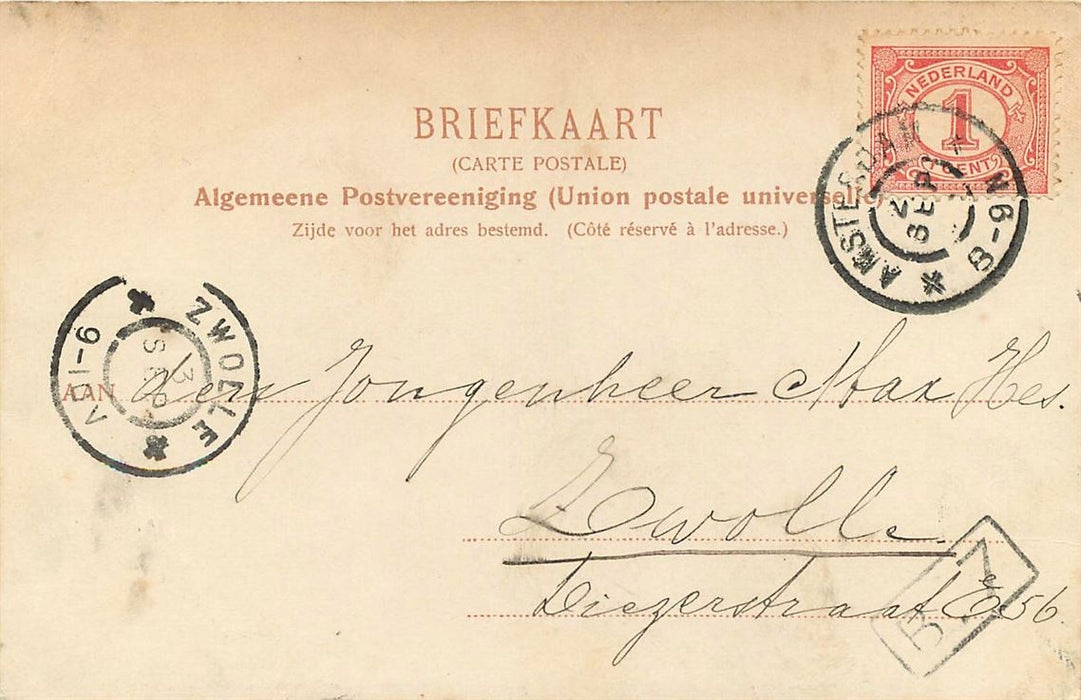 NEDERLAND
1
1 CENT
BRIEFKAART
(CARTE POSTALE)
Algemeene Postvereeniging (Union postale universelle)
Zijde voor het adres bestemd. (Côté réservé à l'adresse.)
AMSTERDAM
2 SEP
8-9 N
ZWOLLE
13 SEP
AAN den Jongenheer Max Hes.
Zwolle.
Diezerstraat 56.
B